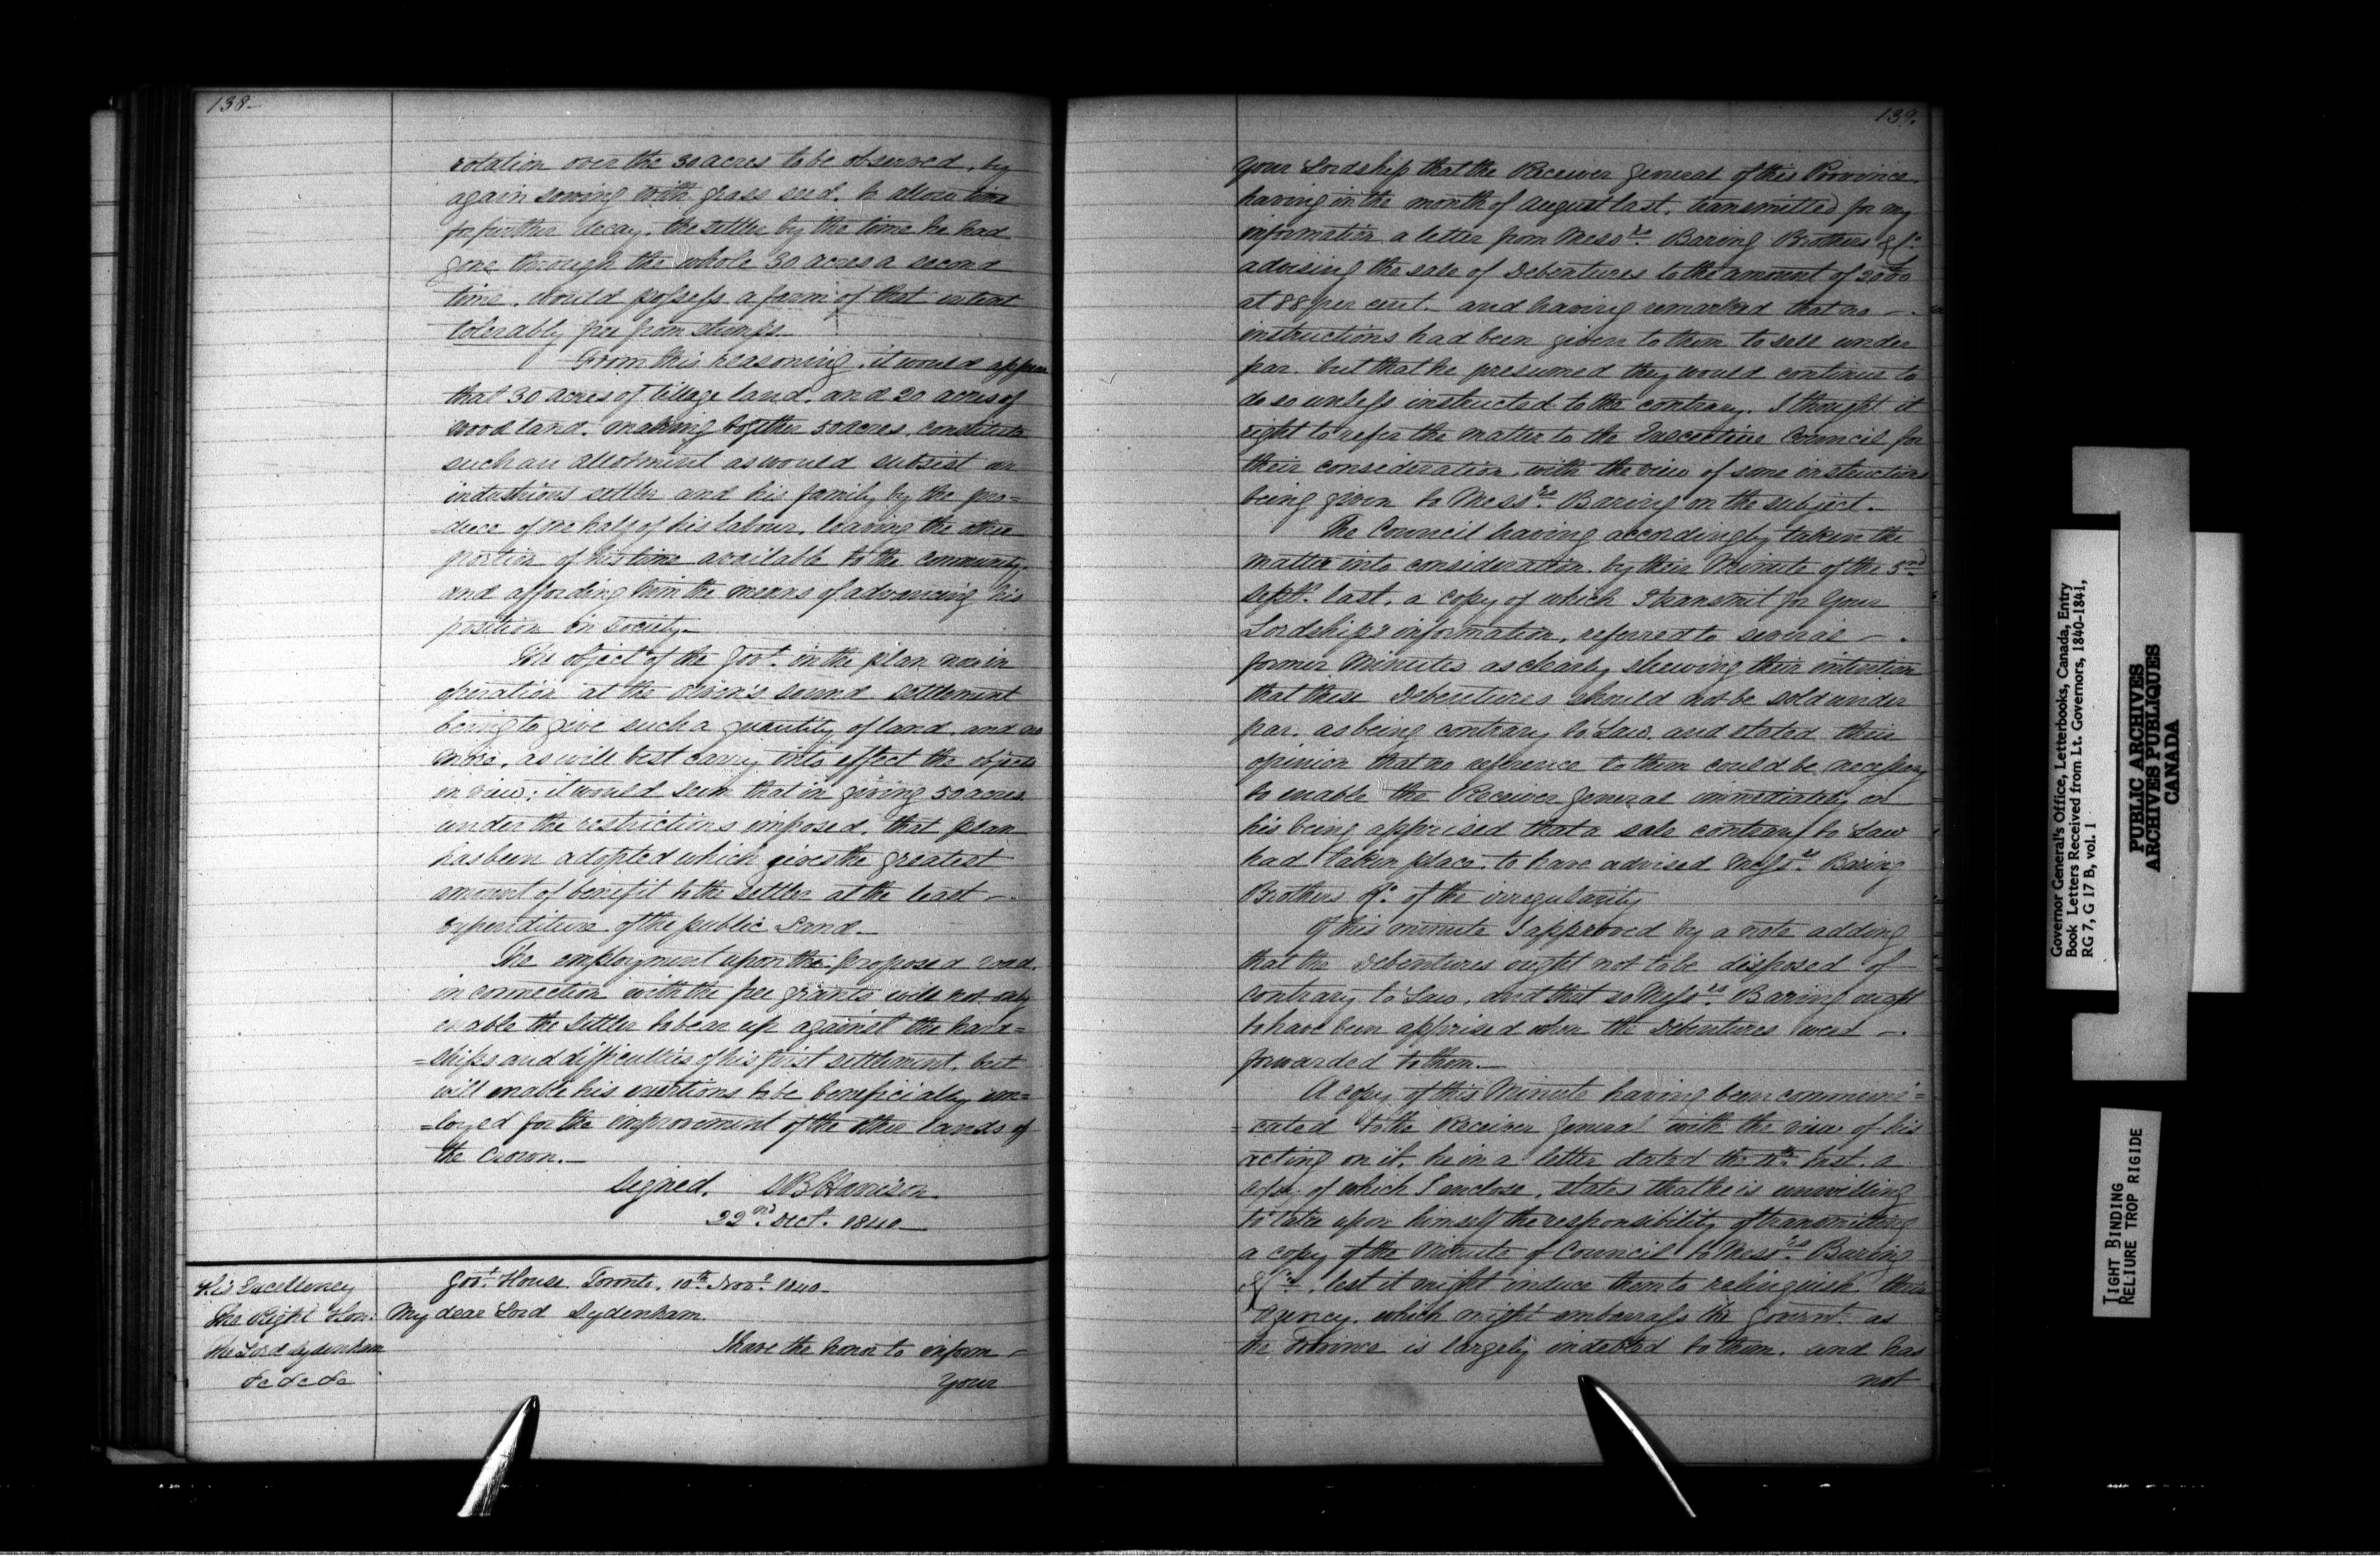 138-
rotation over the 30 acres to be observed, by
again sowing with grass seed, to allow time
for further decay, the settler by the time he had
gone through the whole 30 acres a second
time, would possess a farm of that extent
tolerably free from stumps.
From this reasoning, it would appear
that 30 acres of tillage land, and 20 acres of
wood land, making together 50 acres, constitute
such an allotment as would subsist an
industrious settler and his family by the pro=
=duce of one half of his labour, leaving the other
portion of his time available to the community,
and affording him the means of advancing his
position in society.-
The object of the Govt. in the plan now in
operation at the Owen's Sound settlement
being to give such a quantity of land, and no
more, as will best carry into effect the objects
in view; it would seem that in giving 50 acres
under the restrictions imposed, that plan
has been adopted which gives the greatest
amount of benefit to the settler at the least -
expenditure of the public Land.-
The employment upon the proposed road,
in connection with the free grants will not only
enable the settler to bear up against the hard=
=ships and difficulties of his first settlement, but
will enable his exertions to be beneficially em=
=loyed for the improvement of the other lands of
the Crown.-
Signed. S B Harrison
22nd. Oct. 1840
His Excellency
The Right Hon:
The Lord Sydenham
&c &c &c
Govt. House Toronto, 10th Novr. 1840-
My dear Lord Sydenham
I have the honor to inform -
Your
139.
Your Lordship that the Receiver General of this Province
having in the month of August last, transmitted for my
information a letter from Messrs. Baring Brothers & Co.
advising the sale of Debentures to the amount of
at 88 per cent.- and having remarked that no -
instructions had been given to them to sell under
par, but that he presumed they would continue to
do so unless instructed to the contrary. I thought it
right to refer the matter to the Executive Council for
their consideration, with the view of some instructions
being given to Messrs. Baring on the subject.-
The Council having accordingly taken the
matter into consideration, by their Minute of the
Septr. last, a copy of which I transmit for Your
Lordship's information, referred to several -
former Minutes as clearly shewing their intention
that these Debentures should not be sold under
par, as being contrary to Law, and stated their
opinion that no reference to them could be necessary
to enable the Receiver General immediately on
his being apprised that a sale contrary to Law
had taken place, to have advised Messrs. Baring
Brothers & Co. of the irregularity
Of this minute I approved by a note adding
that the Debentures ought not to be disposed of
contrary to Law, and that so Messrs. Baring ought
to have been apprised when the Debentures were -
forwarded to them.-
A copy of this Minute having been communi=
=cated to the Receiver General with the view of his
acting on it, he in a letter dated the inst. a
copy of which I enclose, states that he is unwilling
to take upon himself the responsibility of transmitting
a copy of the Minute of Council to Messrs. Baring
& Co., lest it might induce them to relinquish their
Agency, which might embarrass the Governt. as
the Province is largely indebted to them, and has
not
Governor General's Office, Letterbooks, Canada, Entry
Book Letters Received from Lt. Governors, 1840-1841,
RG 7, G 17 B, vol. 1
PUBLIC ARCHIVES
ARCHIVES PUBLIQUES
CANADA
TIGHT BINDING
RELIURE TROP RIGIDE